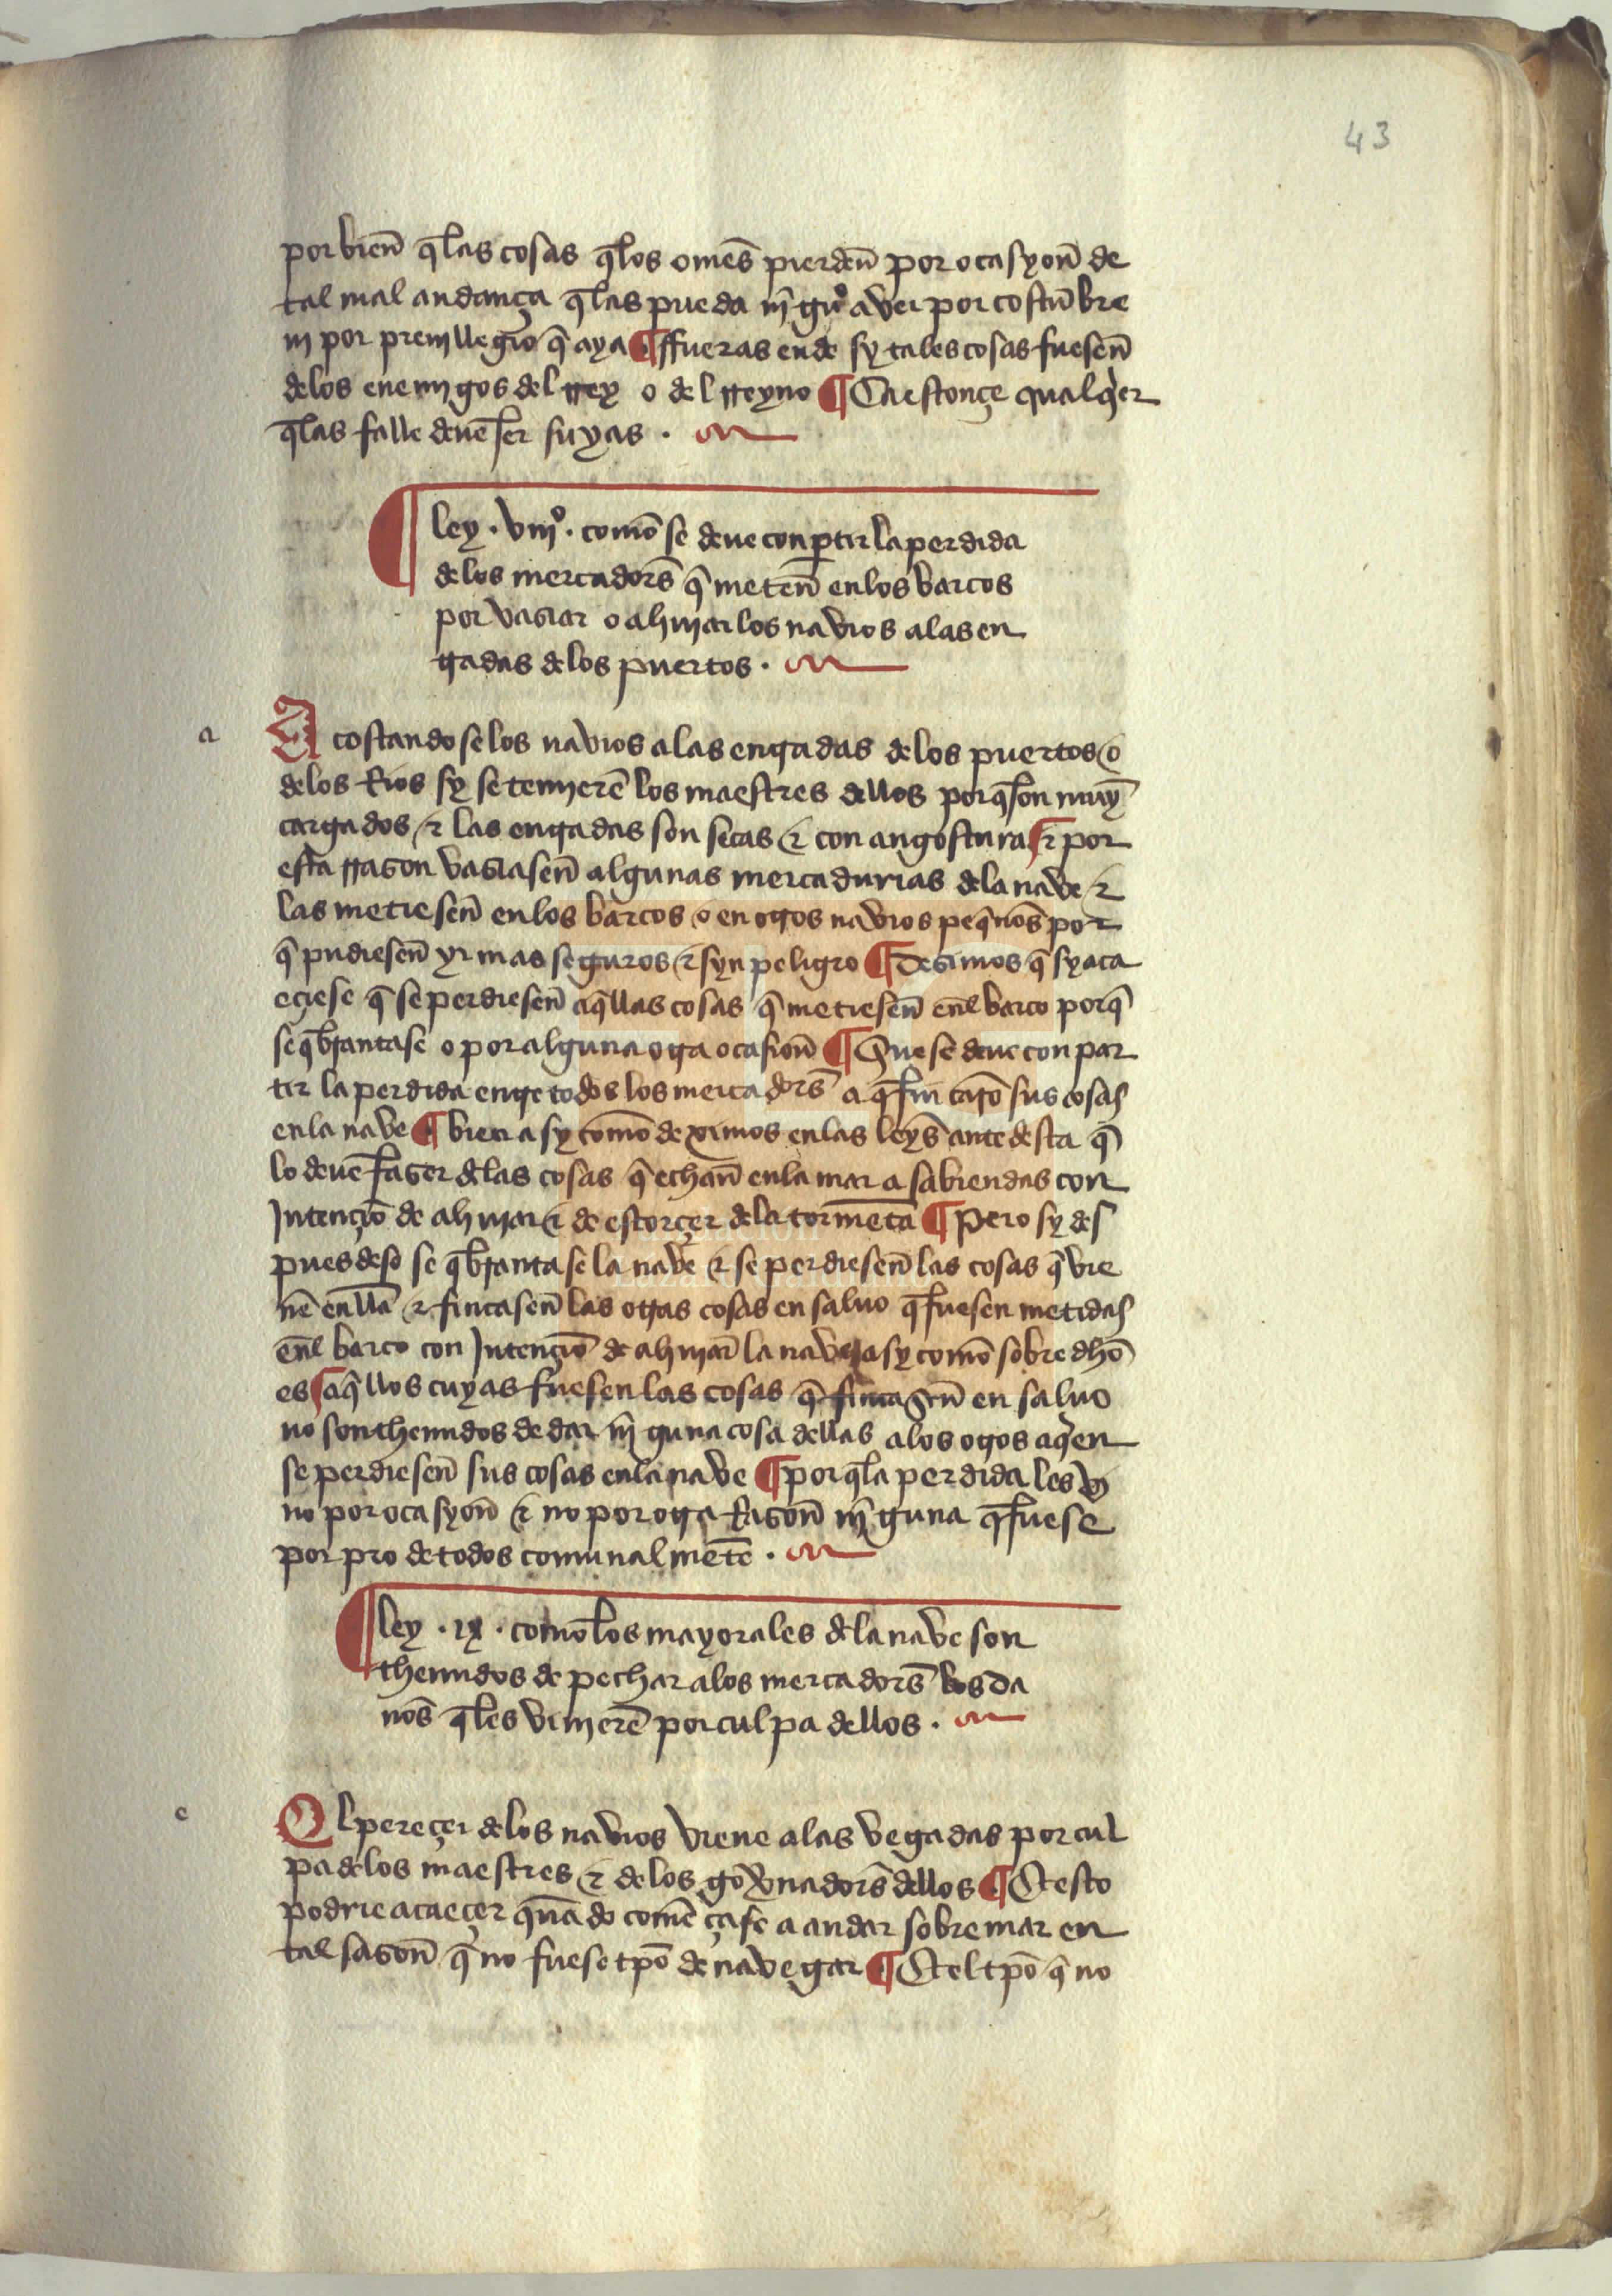 43
por bien̄ q̄ las cosas q̄ los omēs pierdēn por ocasyon̄ de
tal mal andança q̄ las pueda nīguº aver por costūbre
ni por preuillegio q̄ aya ¶ ffueras ende sy tales cosas fuesen̄
delos enemigos del rrey o del rreyno ¶ Ca estonçe qualqͥer
q̄ las falle deuē ser suyas .
¶ ley . viijº . comō se deue conꝑtir la perdida
delos mercadors̄ q̄ meten̄ enlos barcos
por vasiar o aliuiar los navios alas en
tͣadas delos puertos .
a
A costandose los navios alas entͣadas delos puertos o
delos Rios sy se temierē los maestres dellos porq̄ son muy
cargados ⁊ las entͣadas son secas ⁊ con angostura ⁊ por
esta rrason vasiasen̄ algunas mercadurias dela nave ⁊
las metiesen̄ enlos barcos o en otͦs navios peq̄nos por
q̄ pudiesen̄ yr mas seguros ⁊ syn peligro ¶ desimos q̄ sy aca
eçiese q̄ se perdiesen̄ aq̄llas cosas q̄ metiesen̄ enl̄ barco porq̄
se q̄brantase o por alguna otͣ ocasion̄ ¶ Que se deue conpar
tir la perdida entͤ todos los mercadors̄ a q̄ fincarō sus cosas
enla nave ¶ bien asy comō deximos enlas leys̄ ante desta q̄
lo deuē faser dlas cosas q̄ echan̄ enla mar a sabiendas con
Intençiō de aliuiar ⁊ de estorçer dela tormēta ¶ Pero sy des
pues deso se q̄brantase la nave ⁊ se perdiesen̄ las cosas q̄ vie
nē enlla ⁊ fincasen̄ las otras cosas en saluo q̄ fuesen metidas
enl̄ barco con Intençiō de aliuiar̄ la nave asy comō sobredh̄o
es aq̄llos cuyas fuesen las cosas q̄ fincasen̄ en saluo
no son thenudos de dar nīguna cosa dellas alos otͦs aqͥen
se perdiesen̄ sus cosas enla nave ¶ porq̄ la perdida les vi
no por ocasyon̄ ⁊ no por otͣ Rason̄ nīguna q̄ fuese
por pro de todos comunalmētē .
¶ ley . ix . como los mayorales dla nave son
thenudos de pechar alos mercadors̄ los da
nos̄ q̄ les vinierē por culpa dellos .
e
E l pereçer delos navios viene alas vegadas por cul
pa delos maestres ⁊ delos gov̄nadors̄ dellos ¶ E esto
podrie acaeçer quādo comēçase a andar sobre mar en
tal sason̄ q̄ no fuese tp̄o de navegar ¶ E el tp̄o q̄ no